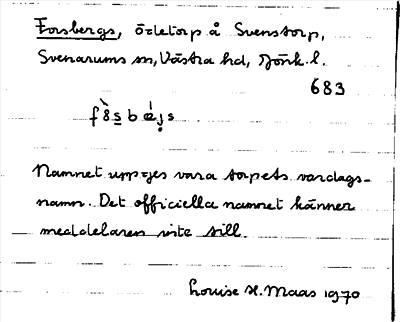 Forsbergs, ödetorp å Svenstorp,
Svenarums sn, Västra hd, Jönk. l.
683
Namnet uppges vara torpets vardags-
namn. Det officiella namnet känner
meddelaren inte till.
Louise H. Maas 1970